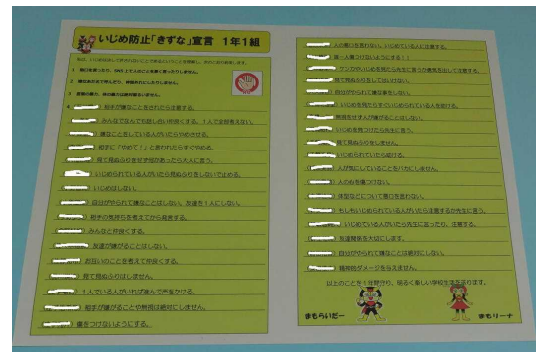 いじめ防止「きずな」宣言 1年1組
1 悪口を言ったり、SNSで人のことを悪く言ったりしません。
4 相手が嫌なことをされたら注意する。
みんなでなんでも話し合い仲良くする。1人で全部考えない。
嫌なことをしている人がいたらやめさせる。
相手に「やめて！」と言われたらすぐやめる。
見て見ぬふりをせず何かあったら大人に言う。
いじめられている人がいたら見ぬふりをしないで止める。
いじめはしない。
自分がやられて嫌なことはしない。友達を1人にしない。
相手の気持ちを考えてから発言する。
みんなと仲良くする。
友達が嫌がることはしない。
お互いのことを考えて仲良くする。
見て見ぬふりはしません。
1人でいる人がいれば進んで声をかける。
相手が嫌がることや無視は絶対にしません。
傷をつけないようにする。
人の悪口を言わない。いじめている人に注意する。
誰一人傷つけないようにする！！
ケンカやいじめを見たら先生に言うか勇気を出して注意する。
見て見ぬふりをして出けない。
自分がやられて嫌な事をしない。
いじめを見たらすぐいじめられている人を助ける。
無視をせず人が嫌がることはしない。
いじめを見つけたら先生に言う。
見て見ぬふりをしません。
いじめられていたら助ける。
人が気にしていることをバカにしません。
人の心を傷つけない。
体型などについて悪口を言わない。
もしもいじめられている人がいたら注意するか先生に言う。
いじめている人がいたら先生に言ったり、注意する。
友達関係を大切にします。
自分がやられて嫌なことは絶対にしない。
精神的ダメージを与えません。
以上のことを1年間守り、明るく楽しい学校生活を送ります。
まもらいだー
まもリーナ